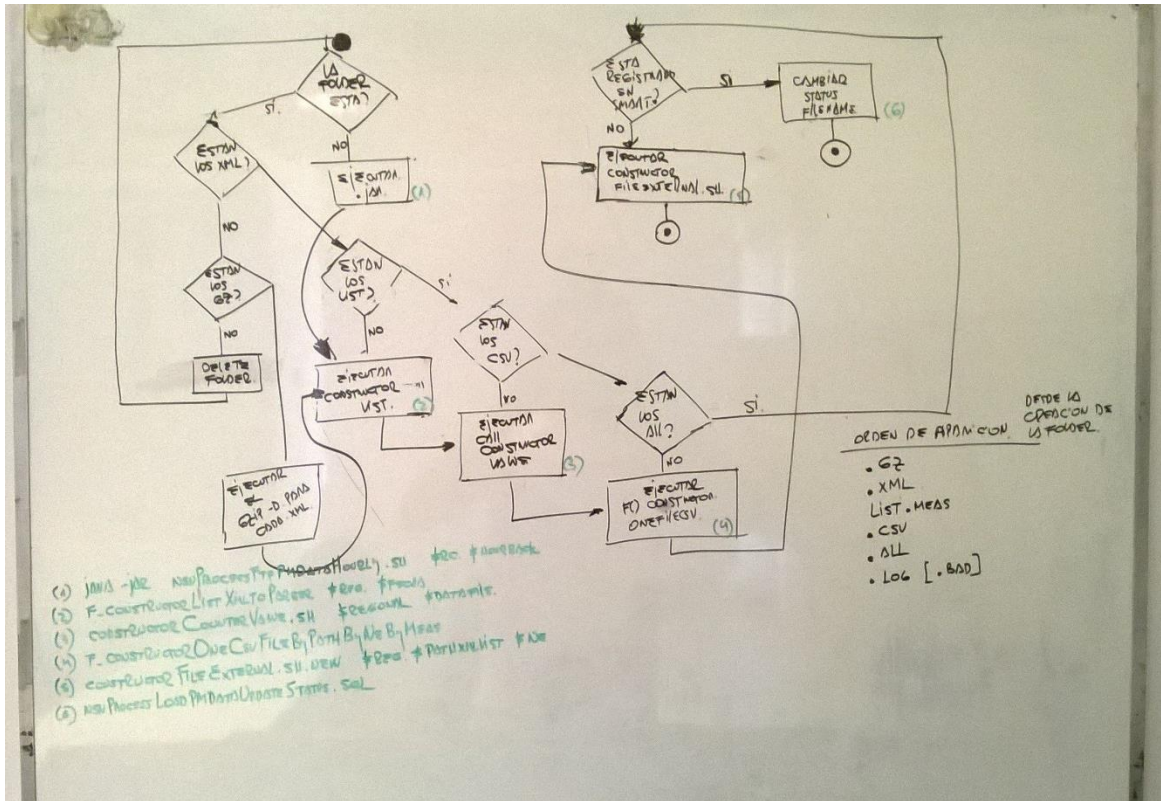 LA
FOLDER
ESTA?
SI.
NO
EJECUTAR
.JAR
(1)
ESTAN
LOS XML?
NO
ESTAN
LOS
GZ?
NO
DELETE
FOLDER
EJECUTAR
GZIP -D PARA
CADA XML
ESTAN
LOS
LIST?
SI
NO
EJECUTAR
CONSTRUCTOR
LIST.
(2)
ESTAN
LOS
CSV?
NO
EJECUTAR
CALL
CONSTRUCTOR
VALUE
(3)
ESTAN
LOS
ALL?
SI.
NO
EJECUTAR
F() CONSTRUCTOR
ONEFILECSV.
(4)
ESTA
REGISTRADO
EN
SMART?
SI
NO
CAMBIAR
STATUS
FILENAME
(6)
EJECUTAR
CONSTRUCTOR
FILEEXTERNAL.SH
(5)
ORDEN DE APARICION.
DESDE LA
CREACION DE
LA FOLDER.
• GZ
• XML
LIST.MEAS
• CSV
• ALL
• LOG [.BAD]
(1) JAVA -JAR
(2) F_CONSTRUCTORLISTXMLTOPARSER $REG.
(3) CONSTRUCTORCOUNTERVALUE.SH $REGIONAL
(4) F_CONSTRUCTORONECSVFILEBYPATHBYNEBYMEAS
(5) CONSTRUCTORFILEEXTERNAL.SH.NEW $REG. $PATHXMLLIST $NE
(6) NSNPROCESSLOADPMDATAUPDATESTATUS.SQL